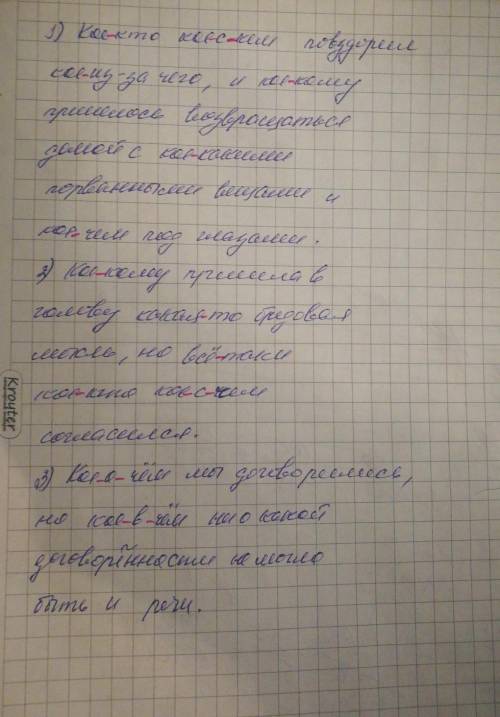 1) Кое-кто кое-с-кем повздорил
кое-из-за чего, и кое-кому
пришлось возвращаться
домой с кое-какими
порванными вещами и
кое-чем под глазами.
2) Кое-кому пришла в
голову какая-то бредовая
мысль, но всё-таки
кое-кто кое-с-чем
согласился.
3) Кое-о-чём мы договорились,
но кое-в-чём ни о какой
договорённости не могло
быть и речи.
Kroyter